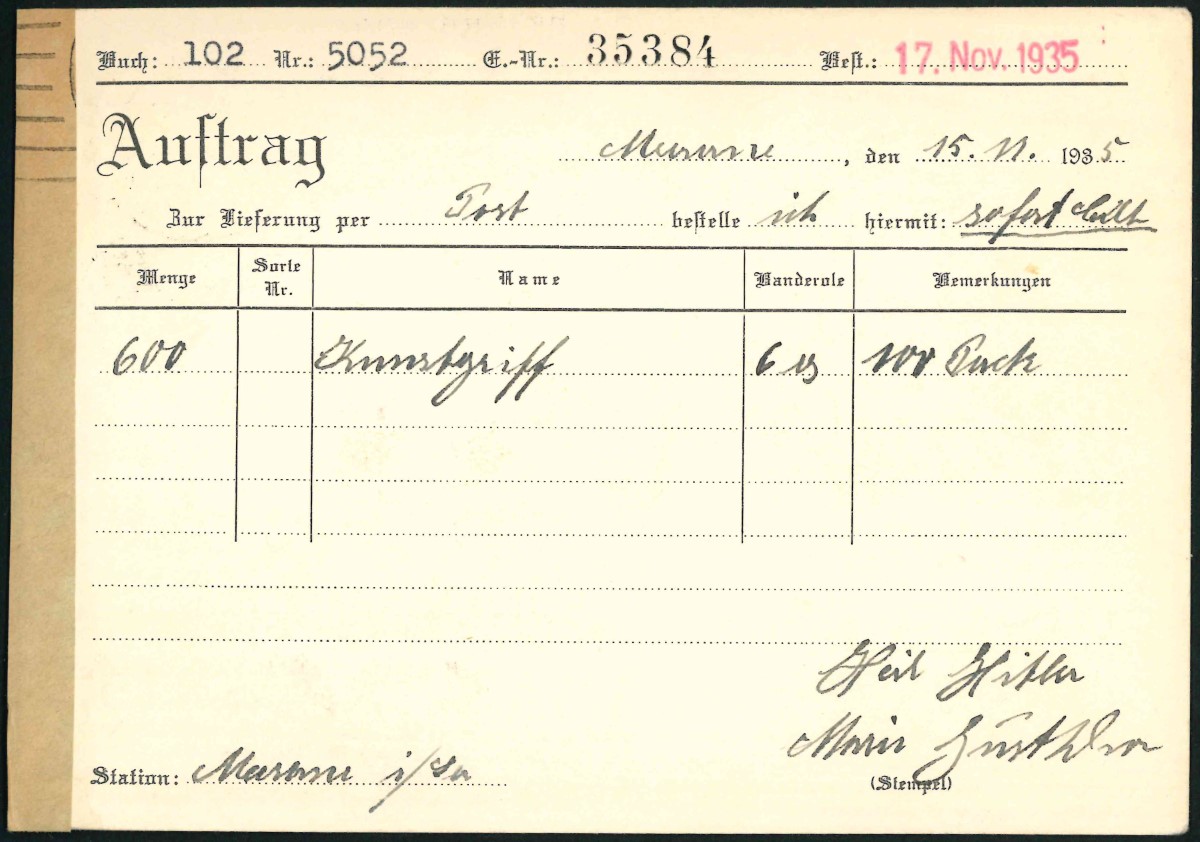 Buch: 102 Nr.: 5052 E.-Nr.: 35384 Best.: 17. Nov. 1935
Auftrag
Meerane, den 15. 11. 1935
Zur Lieferung per Post bestelle ich hiermit: sofort
Menge Sorte Nr. Name Banderole Bemerkungen
600 Kunstgriff 6 100 Pack
Heil Hitler
Marie
Station: Meerane i/Sa
(Stempel)